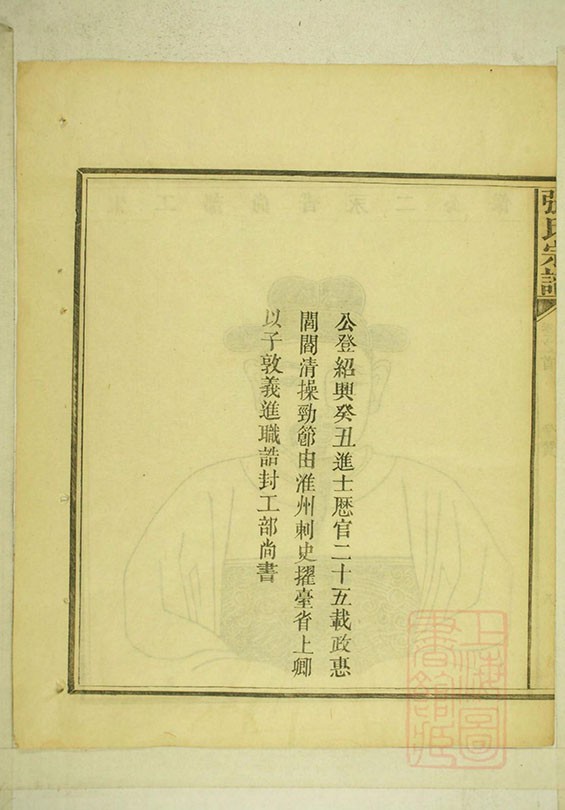 張氏宗譜
公登紹興癸丑進士歴官二十五載政惠
閭閻清操勁節由淮州刺史擢臺省上卿
以子敦義進職誥封工部尚書
上海圖書館藏